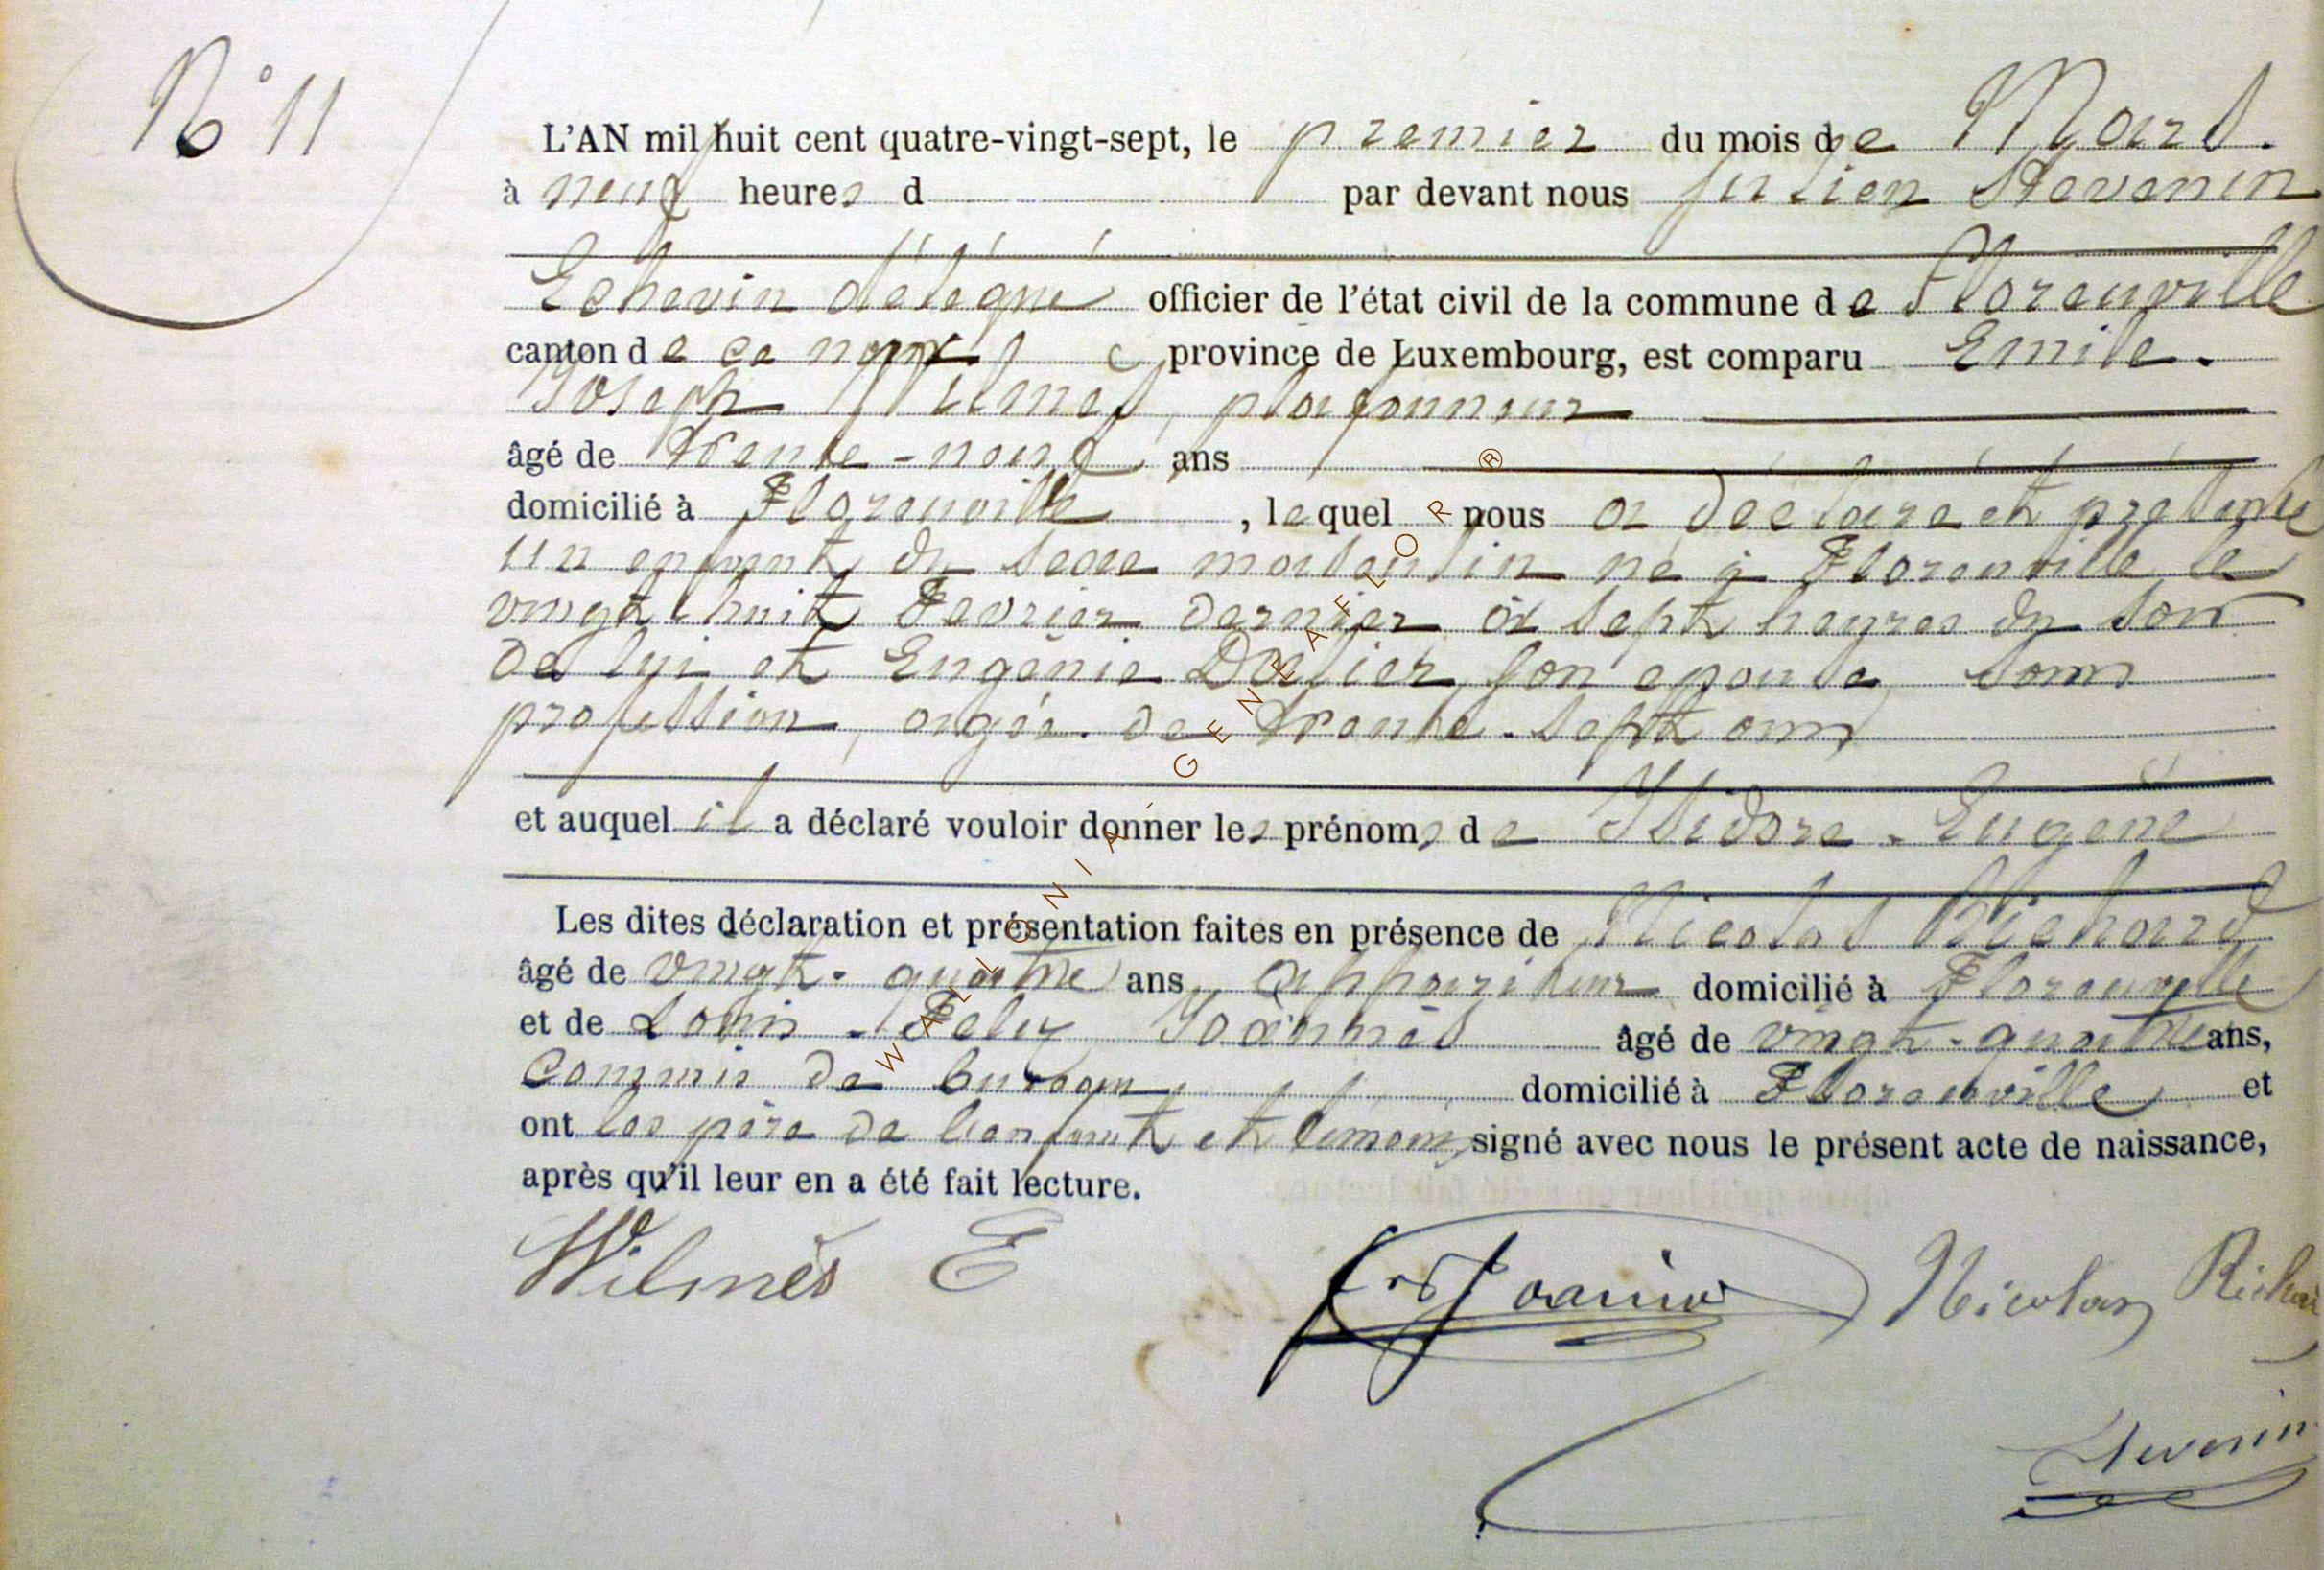 N° 11
L'AN mil huit cent quatre-vingt-sept, le premier du mois de Mars.
à neuf heures d par devant nous Julien Stevenin
Echevin délégué officier de l'état civil de la commune de Florenville
canton de ce nom province de Luxembourg, est comparu Emile.
Joseph Wilmes, plafonneur
âgé de trente-neuf ans
domicilié à Florenville, lequel nous a déclaré et présenté
un enfant du sexe masculin né à Florenville le
vingt-huit Fevrier dernier à sept heures du soir
de lui et Eugénie son epouse sans
profession, agée de trente-sept ans
et auquel il a déclaré vouloir donner les prénoms de Isidore-Eugène
Les dites déclaration et présentation faites en présence de Nicolas Richard
âgé de vingt-quatre ans, appariteur domicilié à Florenville
et de Louis-Felix Joannès âgé de vingt-quatre ans,
commis de bureau, domicilié à Florenville et
ont les père de l'enfant et témoins, signé avec nous le présent acte de naissance,
après qu'il leur en a été fait lecture.
Wilmès E
Nicolas Richar
Stevenin
WALLONIA-GENEAFLOR®